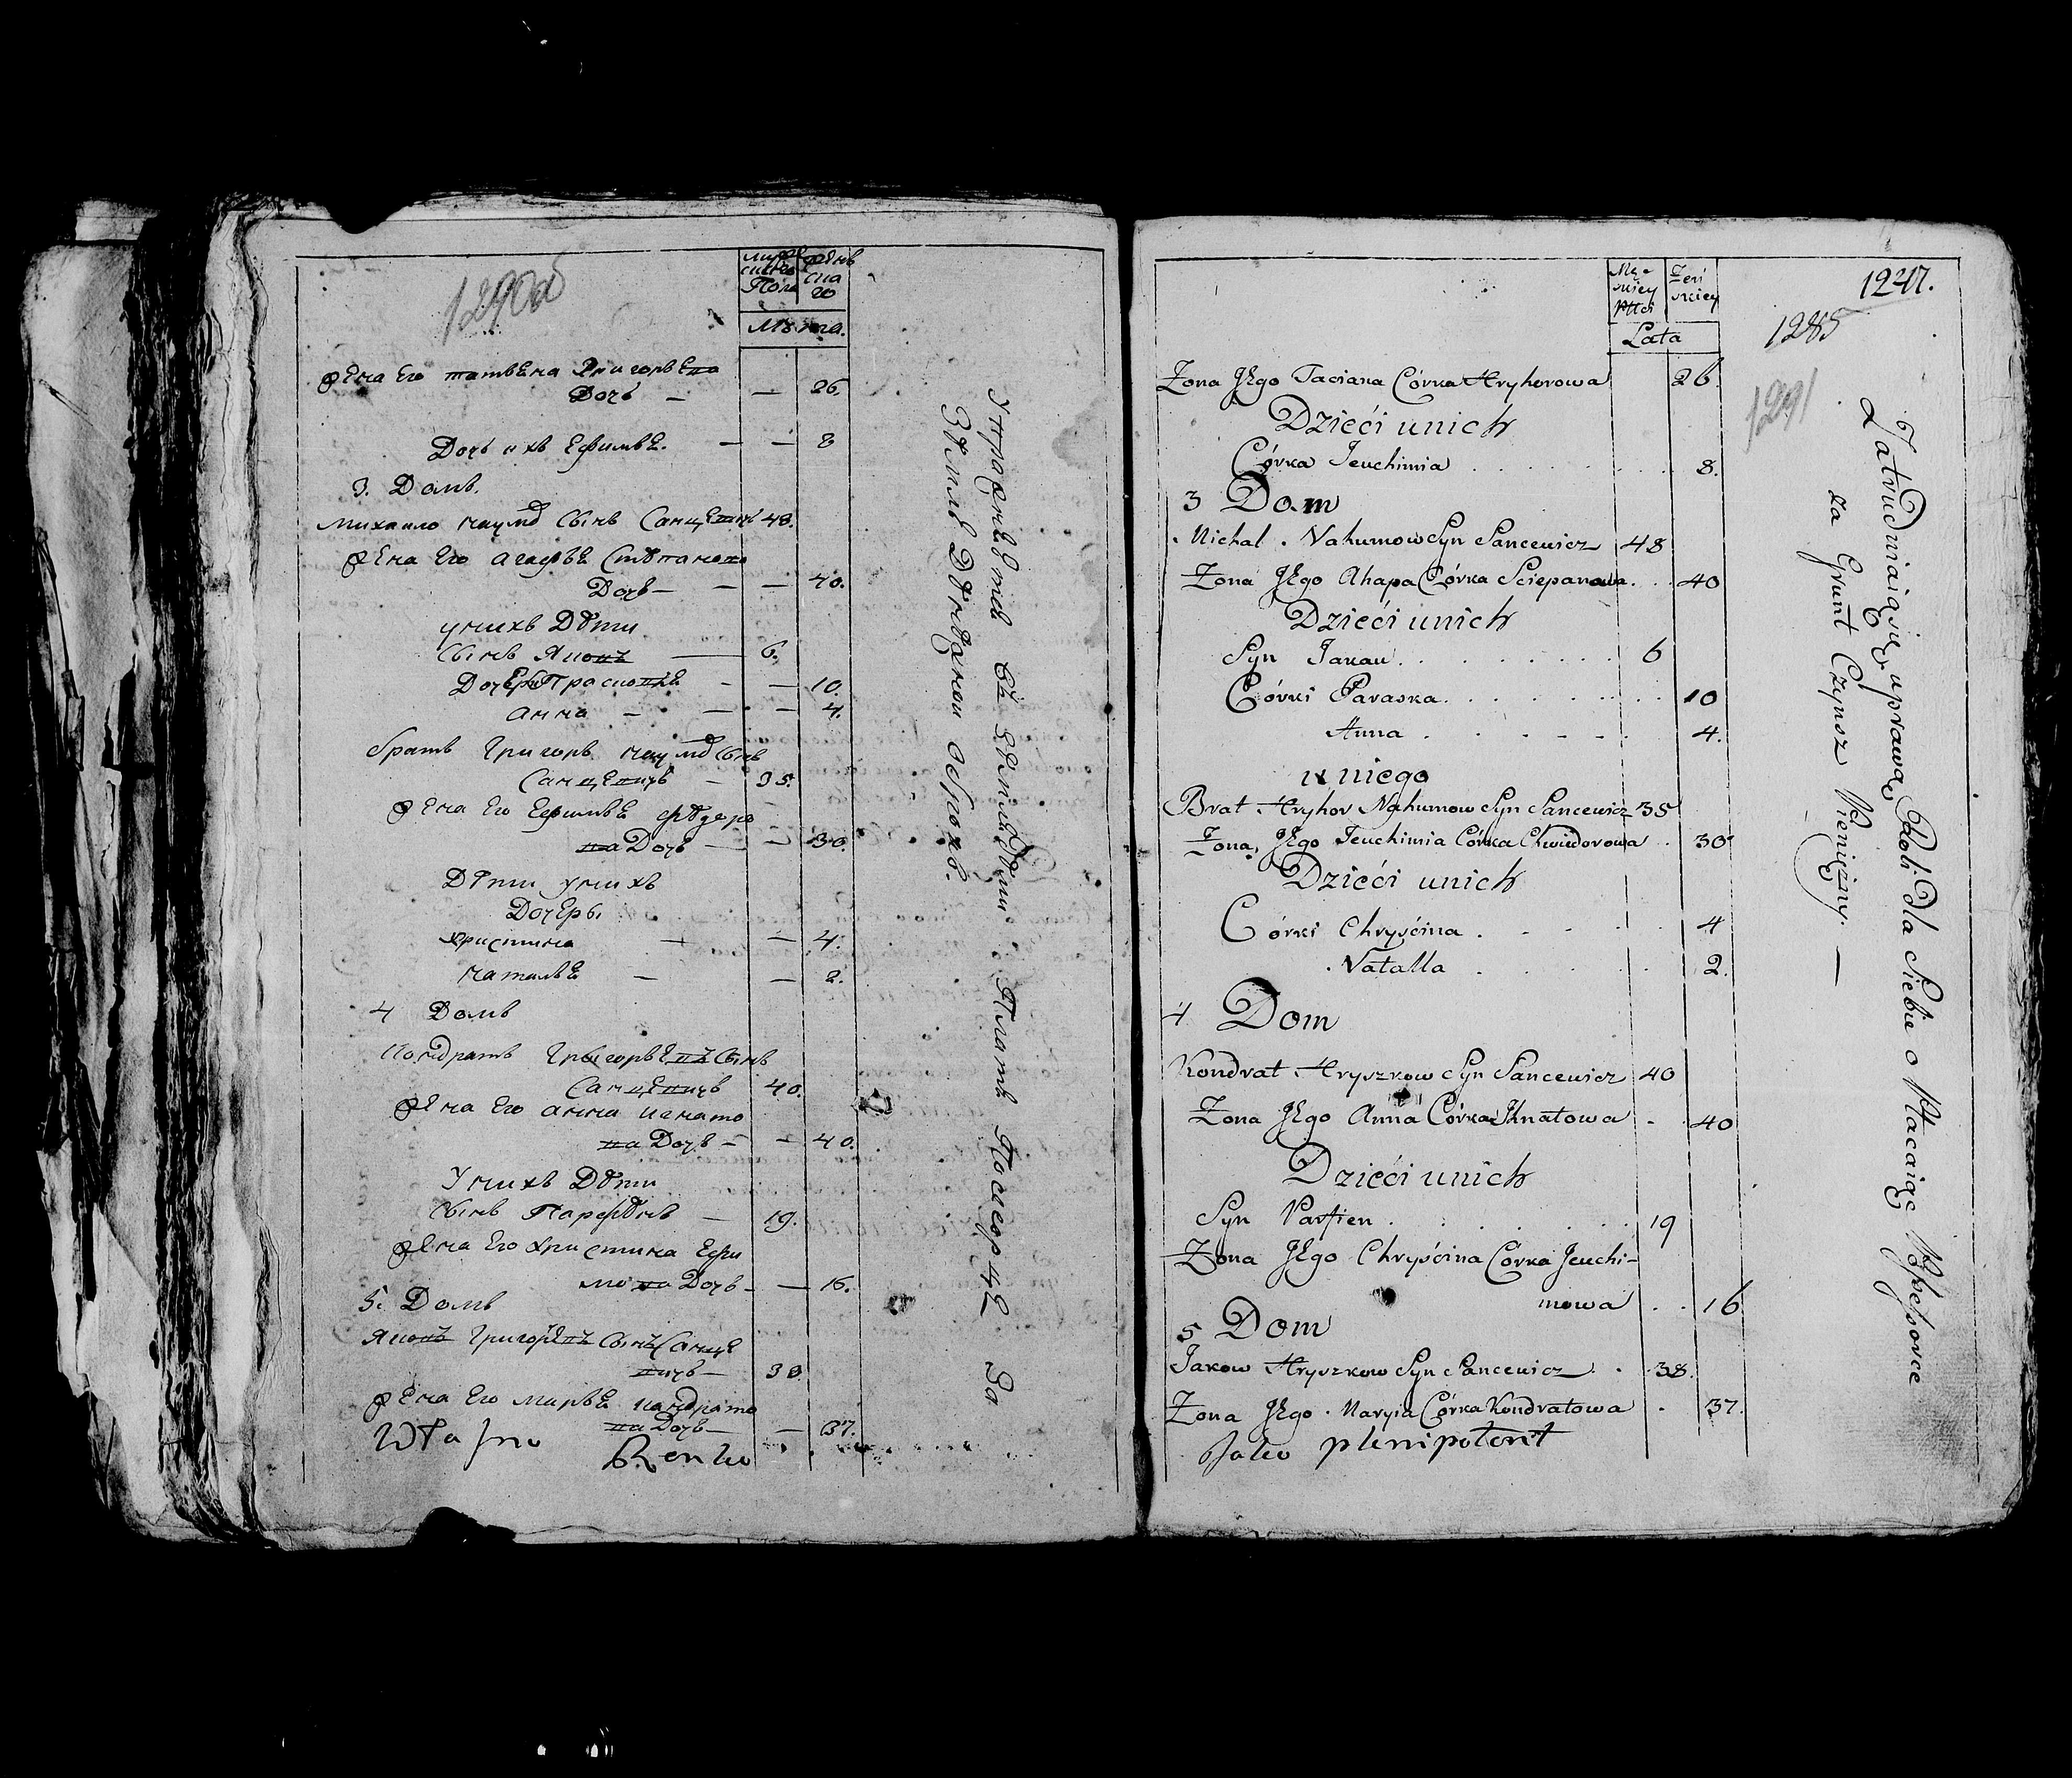 1290об
мужескаго Пола
женскаго
Лѣта.
Жена Его татьяна Григорьева
Дочь — — 26.
Дочь ихъ Ефимья. — — 8
3. Домъ.
Михайло наумовъ Сынъ Санцевичъ 48.
Жена Его агафья Степанова
Дочь — — — 40.
унихъ Дѣти
Сынъ Яковъ — 6.
Дочери Прасковья — — 10.
анна — — — 4.
братъ Григоръ наумовъ Сынъ
Санцевичъ — 35.
Жена Его Ефимья федоро
ва Дочь — — 30.
Дѣти унихъ
Дочеры
христина — — 4.
наталья — — 2.
4 Домъ
Кондратъ Григорьевъ Сынъ
Санцевичъ 40.
Жена Его анна игнато
ва Дочь — — 40.
Унихъ Дѣти
Сынъ Парфенъ — 19.
Жена Его Христина Ефи
мова Дочь — — 16.
5. Домъ
Яковъ Григорьевъ Сынъ Санце
вичъ — 38
Жена Его Марья кондрато
ва Дочь — — 37.
Земли Денежной оброкъ.
1247.
1285
1291
Męskiey Płci
Żeńskiey
Lata
Żona Jego Taciana Córka Hryhorowa 26.
Dzieći unich
Córka Jeuchimia . . . . . . 8.
3 Dom
Michal Nahumow Syn Sancewicz 48
Żona Jego Ahapa Córka Sciepanowa . . 40
Dzieći unich
Syn Jakau . . . . . . . 6
Córki Paraska . . . . . . . 10
Anna . . . . . . 4.
u niego
Brat Hryhor Nahumow Syn Sancewicz 35
Żona Jego Jeuchimia Córka Chwiedorowa . 30
Dzieći unich
Córki Chryścina . . . . . 4
Natalla . . . . . 2.
4 Dom
Kondrat Hryszkow Syn Sancewicz 40
Żona Jego Anna Córka Ihnatowa . . 40
Dzieći unich
Syn Parfien . . . . . . . 19
Żona Jego Chryścina Córka Jeuchi-
mowa . . 16
5 Dom
Jakow Hryszkow Syn Sancewicz . . 38.
Żona Jego Maryia Córka Kondratowa . 37.
Jako plenipotent
Zatrudniaiąsię uprawą Roli dla Siebie o Płacaiąc Possessorce
za Grunt Czynsz Pieniężny. —